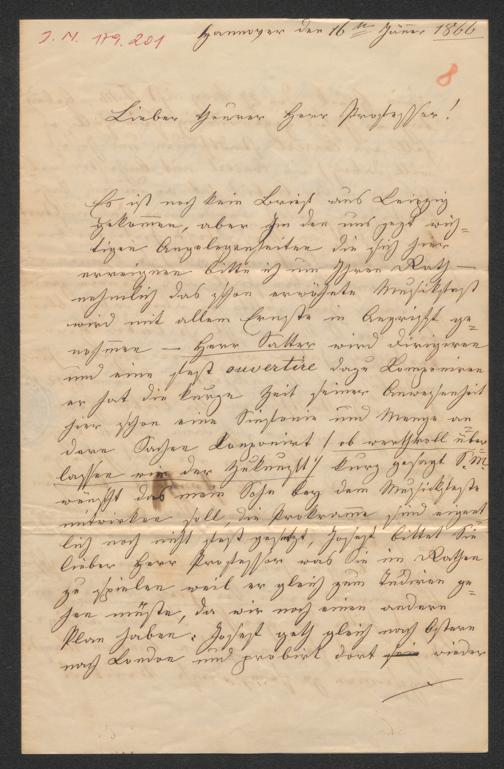 J. N. 179.201
Hannover den 16ten Jäner 1866
8
Lieber theurer Herr Professor!
Es ist noch kein Brief aus Leipzig
gekommen, aber in den uns jezt wich-
tigen Angelegenheiten die sich hier
erreignen bitte ich um Ihren Rath —
nehmlich das schon erwähnte Musickfest
wird mit allem Ernste in Angriff ge-
nohmen — Herr Satter wird dirigiren
und eine fest ouvertire dazu komponiren
er hat die kurze Zeit seiner Anwesenheit
hier schon eine Sinfonie und Menge an-
dere Sachen komponirt / ob werthvoll über-
lassen wir der Zukunft / kurz gesagt S. M.
wünscht das mein Sohn bey dem Musickfeste
mitwirken soll, die Prokrame sind eigent
lich noch nicht fest gesetzt, Josef bittet Sie
lieber Herr Professor was Sie im Rathen
zu spielen weil er gleich zum Studiren ge-
hen müste, da wir noch einen andern
Plan haben: Josef geth gleich nach Ostern
nach London und probirt dort wieder